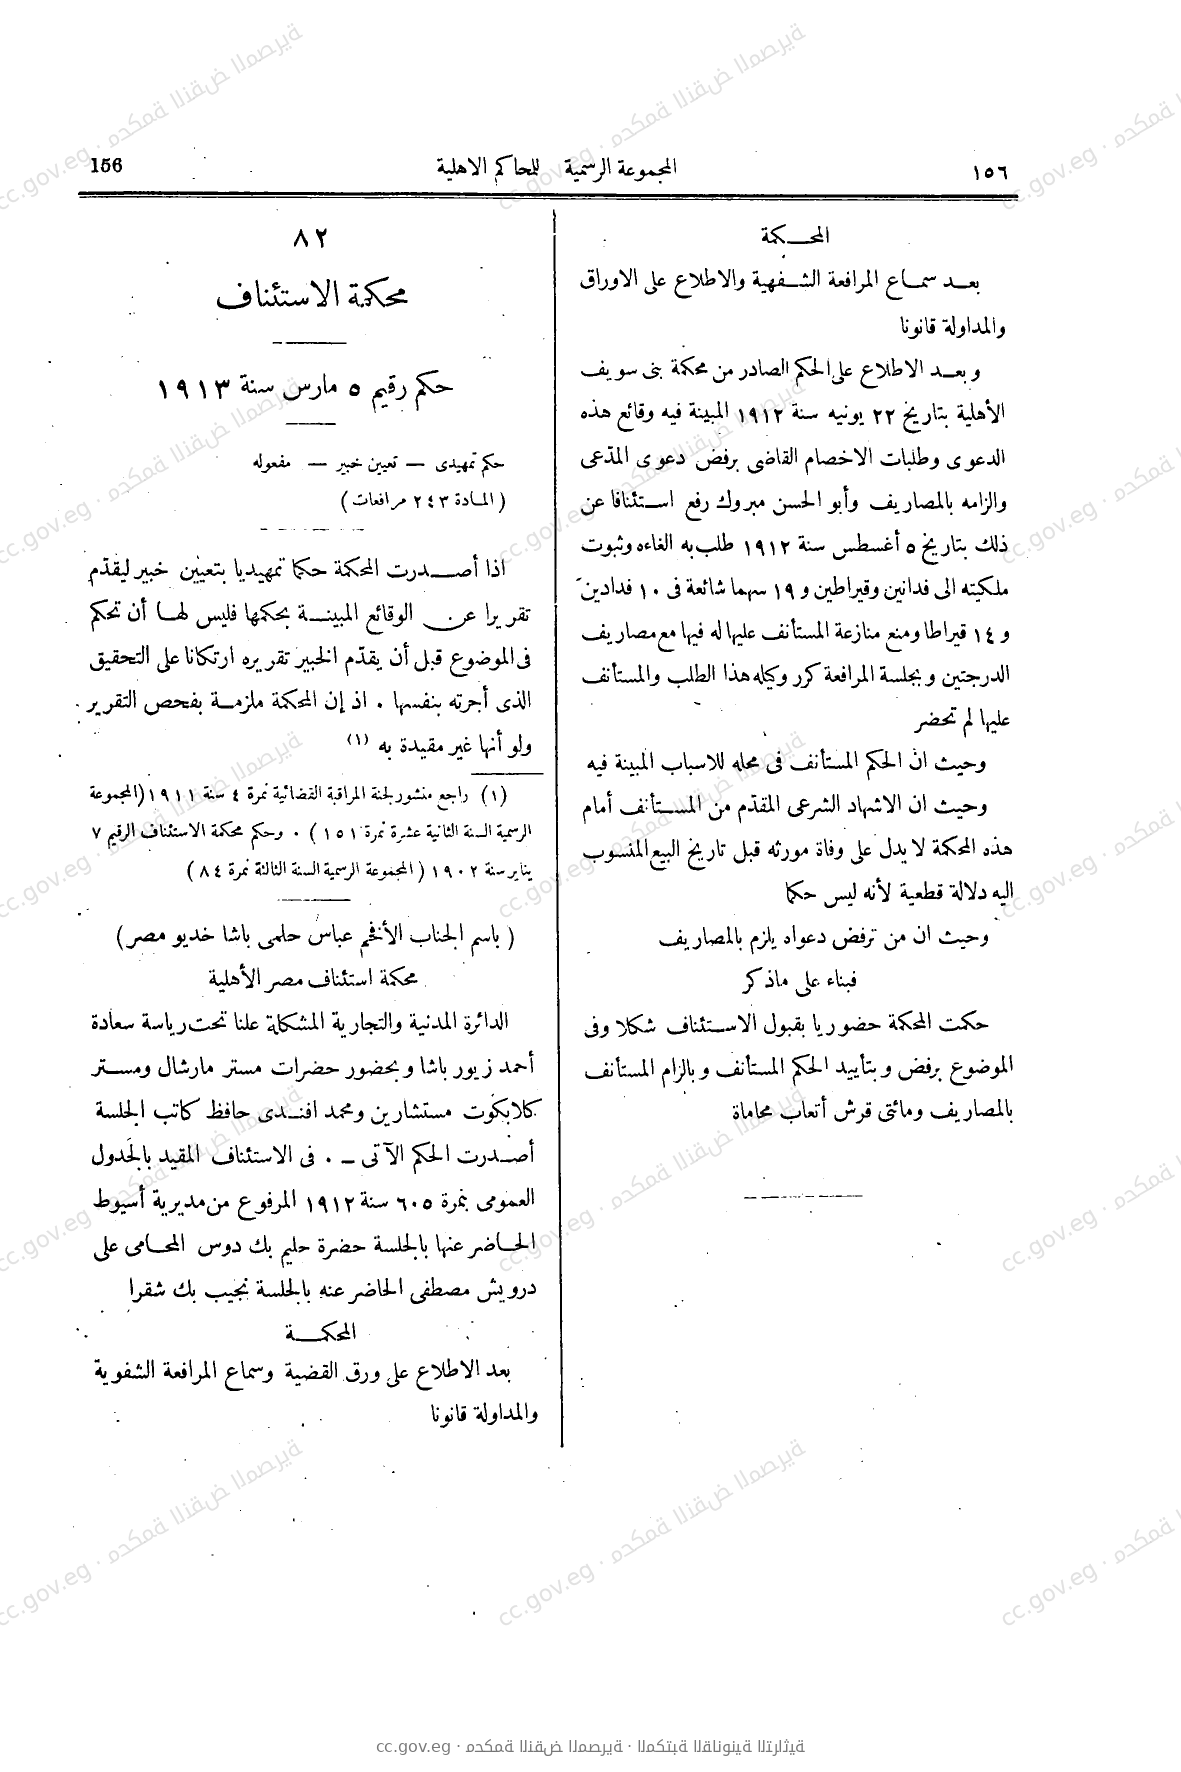 ١٥٦ المجموعة الرسمية للمحاكم الاهلية 156
المحــكمة
بعــد سمـاع المرافعة الشـفهية والاطلاع على الاوراق
والمداولة قانونا
وبعـد الاطلاع على الحكم الصادر من محكمة بنى سويف
الأهلية بتاريخ ٢٢ يونيه سنة ١٩١٢ المبينة فيه وقائع هذه
الدعوى وطلبات الاخصام القاضى برفض دعوى المدّعى
والزامه بالمصاريف وأبو الحسن مبروك رفع اسـتئنافا عن
ذلك بتاريخ ٥ أغسطس سنة ١٩١٢ طلب به الغاءه وثبوت
ملكيته الى فدانين وقيراطين و ١٩ سهما شائعة فى ١٠ فدادين
و ١٤ قيراطا ومنع منازعة المستأنف عليها له فيها مع مصاريف
الدرجتين وبجلسة المرافعة كرر وكيله هذا الطلب والمستأنف
عليها لم تحضر
وحيث ان الحكم المستأنف فى محله للاسباب المبينة فيه
وحيث ان الاشهاد الشرعى المقدّم من المسـتأنف أمام
هذه المحكمة لا يدل على وفاة مورثه قبل تاريخ البيع المنسوب
اليه دلالة قطعية لأنه ليس حكما
وحيث ان من ترفض دعواه يلزم بالمصاريف
فبناء على ماذكر
حكمت المحكمة حضوريا بقبول الاسـتئناف شكلا وفى
الموضوع برفض وبتأييد الحكم المستأنف وبالزام المستأنف
بالمصاريف ومائتى قرش أتعاب محاماة
٨٢
محكمة الاستئناف
حكم رقيم ٥ مارس سنة ١٩١٣
حكم تمهيدى — تعيين خبير — مفعوله
(المـادة ٢٤٣ مرافعات)
اذا أصـدرت المحكمة حكما تمهيديا بتعيين خبير ليقدّم
تقريرا عن الوقائع المبينـة بحكمها فليس لهـا أن تحكم
فى الموضوع قبل أن يقدّم الخبير تقريره ارتكانا على التحقيق
الذى أجرته بنفسها . اذ إن المحكمة ملزمـة بفحص التقرير
ولو أنها غير مقيدة به (١)
(١) راجع منشور لجنة المراقبة القضائية نمرة ٤ سنة ١٩١١ (المجموعة
الرسمية السنة الثانية عشرة نمرة ١٥١) . وحكم محكمة الاستئناف الرقيم ٧
يناير سنة ١٩٠٢ (المجموعة الرسمية السنة الثالثة نمرة ٨٤)
(باسم الجناب الأفخم عباس حلمى باشا خديو مصر)
محكمة استئناف مصر الأهلية
الدائرة المدنية والتجارية المشكلة علنا تحت رياسة سعادة
أحمد زيور باشا وبحضور حضرات مستر مارشال ومسـتر
كلابكوت مستشارين ومحمد افنـدى حافظ كاتب الجلسة
أصـدرت الحكم الآتى — . فى الاستئناف المقيد بالجدول
العمومى بنمرة ٦٠٥ سنة ١٩١٢ المرفوع من مديرية أسيوط
الحـاضر عنها بالجلسة حضرة حليم بك دوس المحـامى على
درويش مصطفى الحاضر عنه بالجلسة نجيب بك شقرا
المحكمــة
بعد الاطلاع على ورق القضية وسماع المرافعة الشفوية
والمداولة قانونا
cc.gov.eg · محكمة النقض المصرية · المكتبة القانونية التراثية